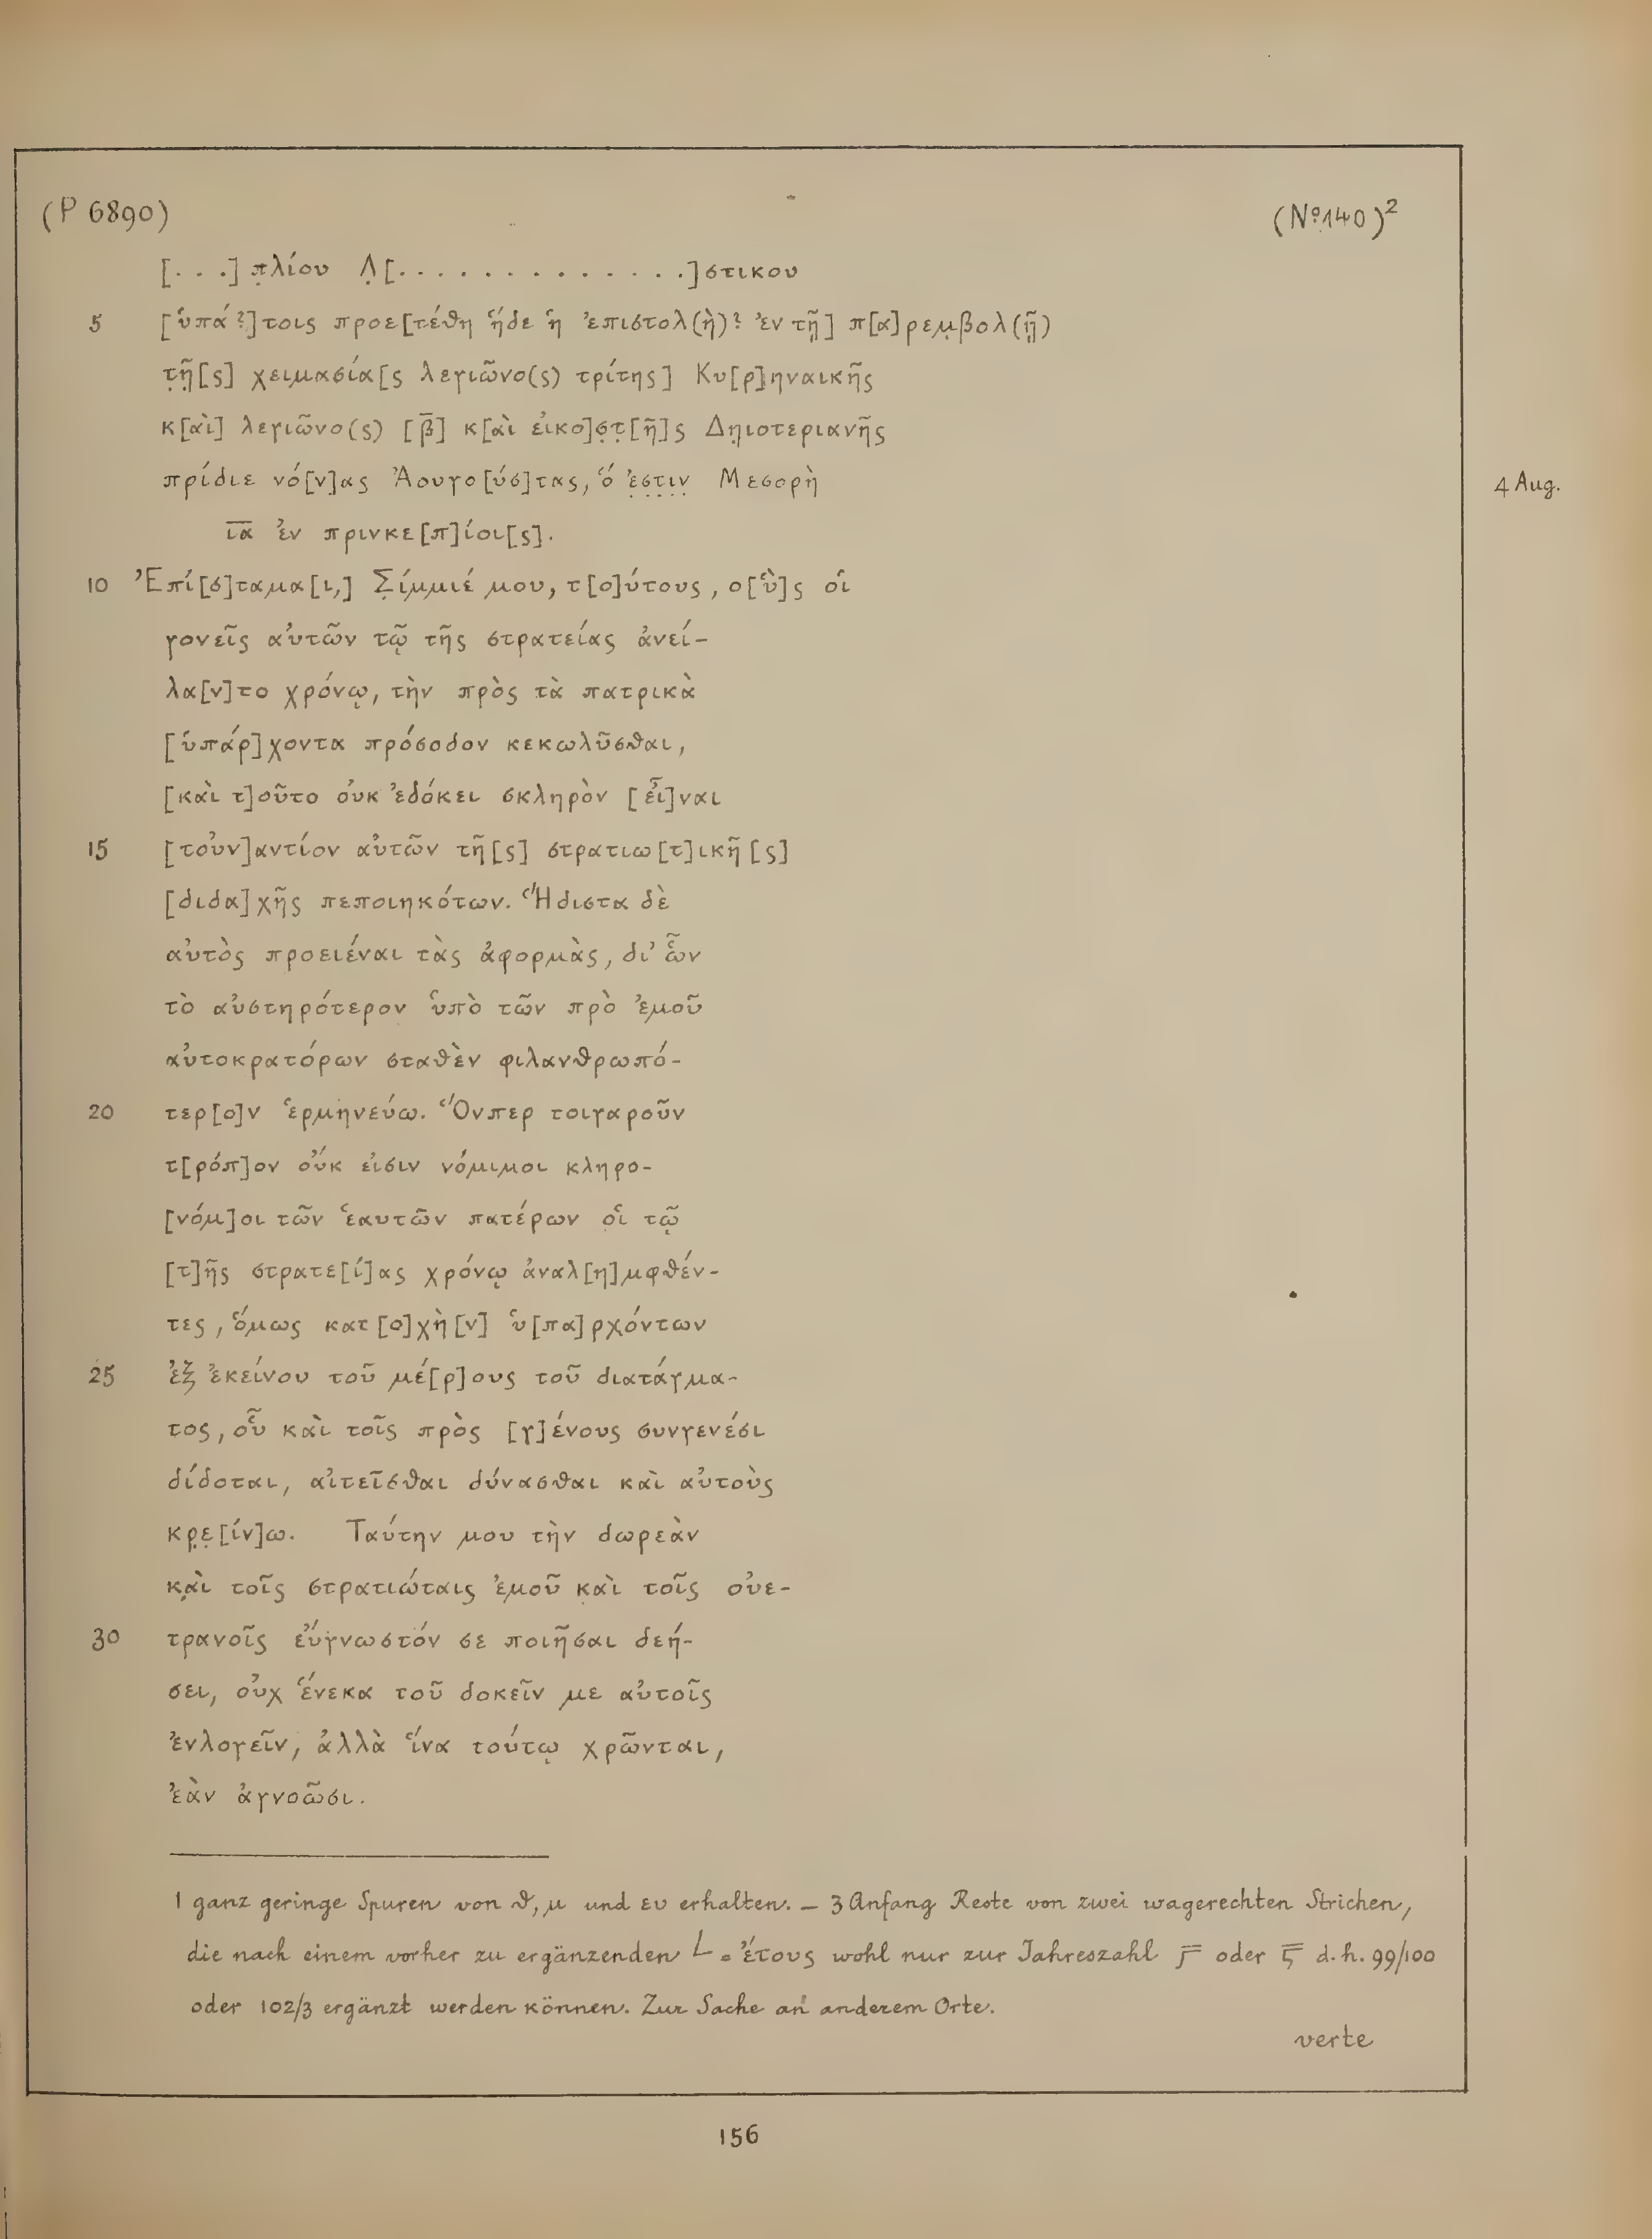 (P 6890)
(Nº 140)²
[. . .] π̣λίου Λ̣[. . . . . . . . . . . . . .]στικου
5 [ὑπά?]τοις προε[τέθη ἥδε ἡ ἐπιστολ(ὴ)? ἐν τῇ] π[α]ρεμ̣βολ(ῇ)
τ̣ῆ̣[ς] χειμασία[ς λεγιῶνο(ς) τρίτης] Κυ[ρ]ηναικῆς
κ[αὶ] λεγιῶνο(ς) [β̅] κ[αὶ εἰκο]σ̣τ̣[ῆ]ς Δη̣ιοτεριανῆς
πρίδιε νό[ν]ας Ἀουγο[ύσ]τας, ὅ ἐ̣σ̣τ̣ι̣ν̣ Μεσορὴ
4 Aug.
ι̅α̅ ἐν πρινκε[π]ίοι[ς].
10 Ἐπί[σ]ταμα[ι,] Σ̣ίμμιέ μου, τ[ο]ύτους, ο[ὓ]ς οἱ
γονεῖς αὐτῶν τῷ τῆς στρατείας ἀνεί-
λα[ν]το χρόνῳ, τὴν πρὸς τὰ πατρικὰ
[ὑπάρ]χοντα πρόσοδον κεκωλῦσθαι,
[καὶ τ]οῦτο οὐκ ἐδόκει σκληρὸν [εἶ]ναι
15 [τοὐν]αντίον αὐτῶν τῆ[ς] στρατιω[τ]ικῆ[ς]
[διδα]χῆς πεποιηκότων. Ἥδιστα δὲ
αὐτὸς προειέναι τὰς ἀφορμὰς, δι’ ὧν
τὸ αὐστηρότερον ὑπὸ τῶν πρὸ ἐμοῦ
αὐτοκρατόρων σταθὲν φιλανθρωπό-
20 τερ[ο]ν ἑρμηνεύω. Ὅνπερ τοιγαροῦν
τ[ρόπ]ον οὔκ εἰσιν νόμιμοι κληρο-
[νόμ]οι τῶν ἑαυτῶν πατέρων οἱ τῷ
[τ]ῆς στρατε[ί]ας χρόνῳ ἀναλ[η]μφθέν-
τες, ὅμως κατ[ο]χὴ[ν] ὑ[πα]ρχόντων
25 ἐξ ἐκείνου τοῦ μέ[ρ]ους τοῦ διατάγμα-
τος, οὗ καὶ τοῖς πρὸς [γ]ένους συνγενέσι
δίδοται, αἰτεῖσθαι δύνασθαι καὶ αὐτοὺς
κρ̣ε̣[ίν]ω. Ταύτην μου τὴν δωρεὰν
κα̣ὶ τοῖς στρατιώταις ἐμοῦ καὶ τοῖς οὐε-
30 τρανοῖς εὔγνωστόν σε ποιῆσαι δεή-
σει, οὐχ ἕνεκα τοῦ δοκεῖν με αὐτοῖς
ἐνλογεῖν, ἀλλὰ ἵνα τούτῳ χρῶνται,
ἐὰν ἀγνοῶσι.
1 ganz geringe Spuren von ϑ, μ und ευ erhalten. – 3 Anfang Reste von zwei wagerechten Strichen,
die nach einem vorher zu ergänzenden L = ἔτους wohl nur zur Jahreszahl γ̅ oder ς̅ d. h. 99/100
oder 102/3 ergänzt werden können. Zur Sache an anderem Orte.
verte
156